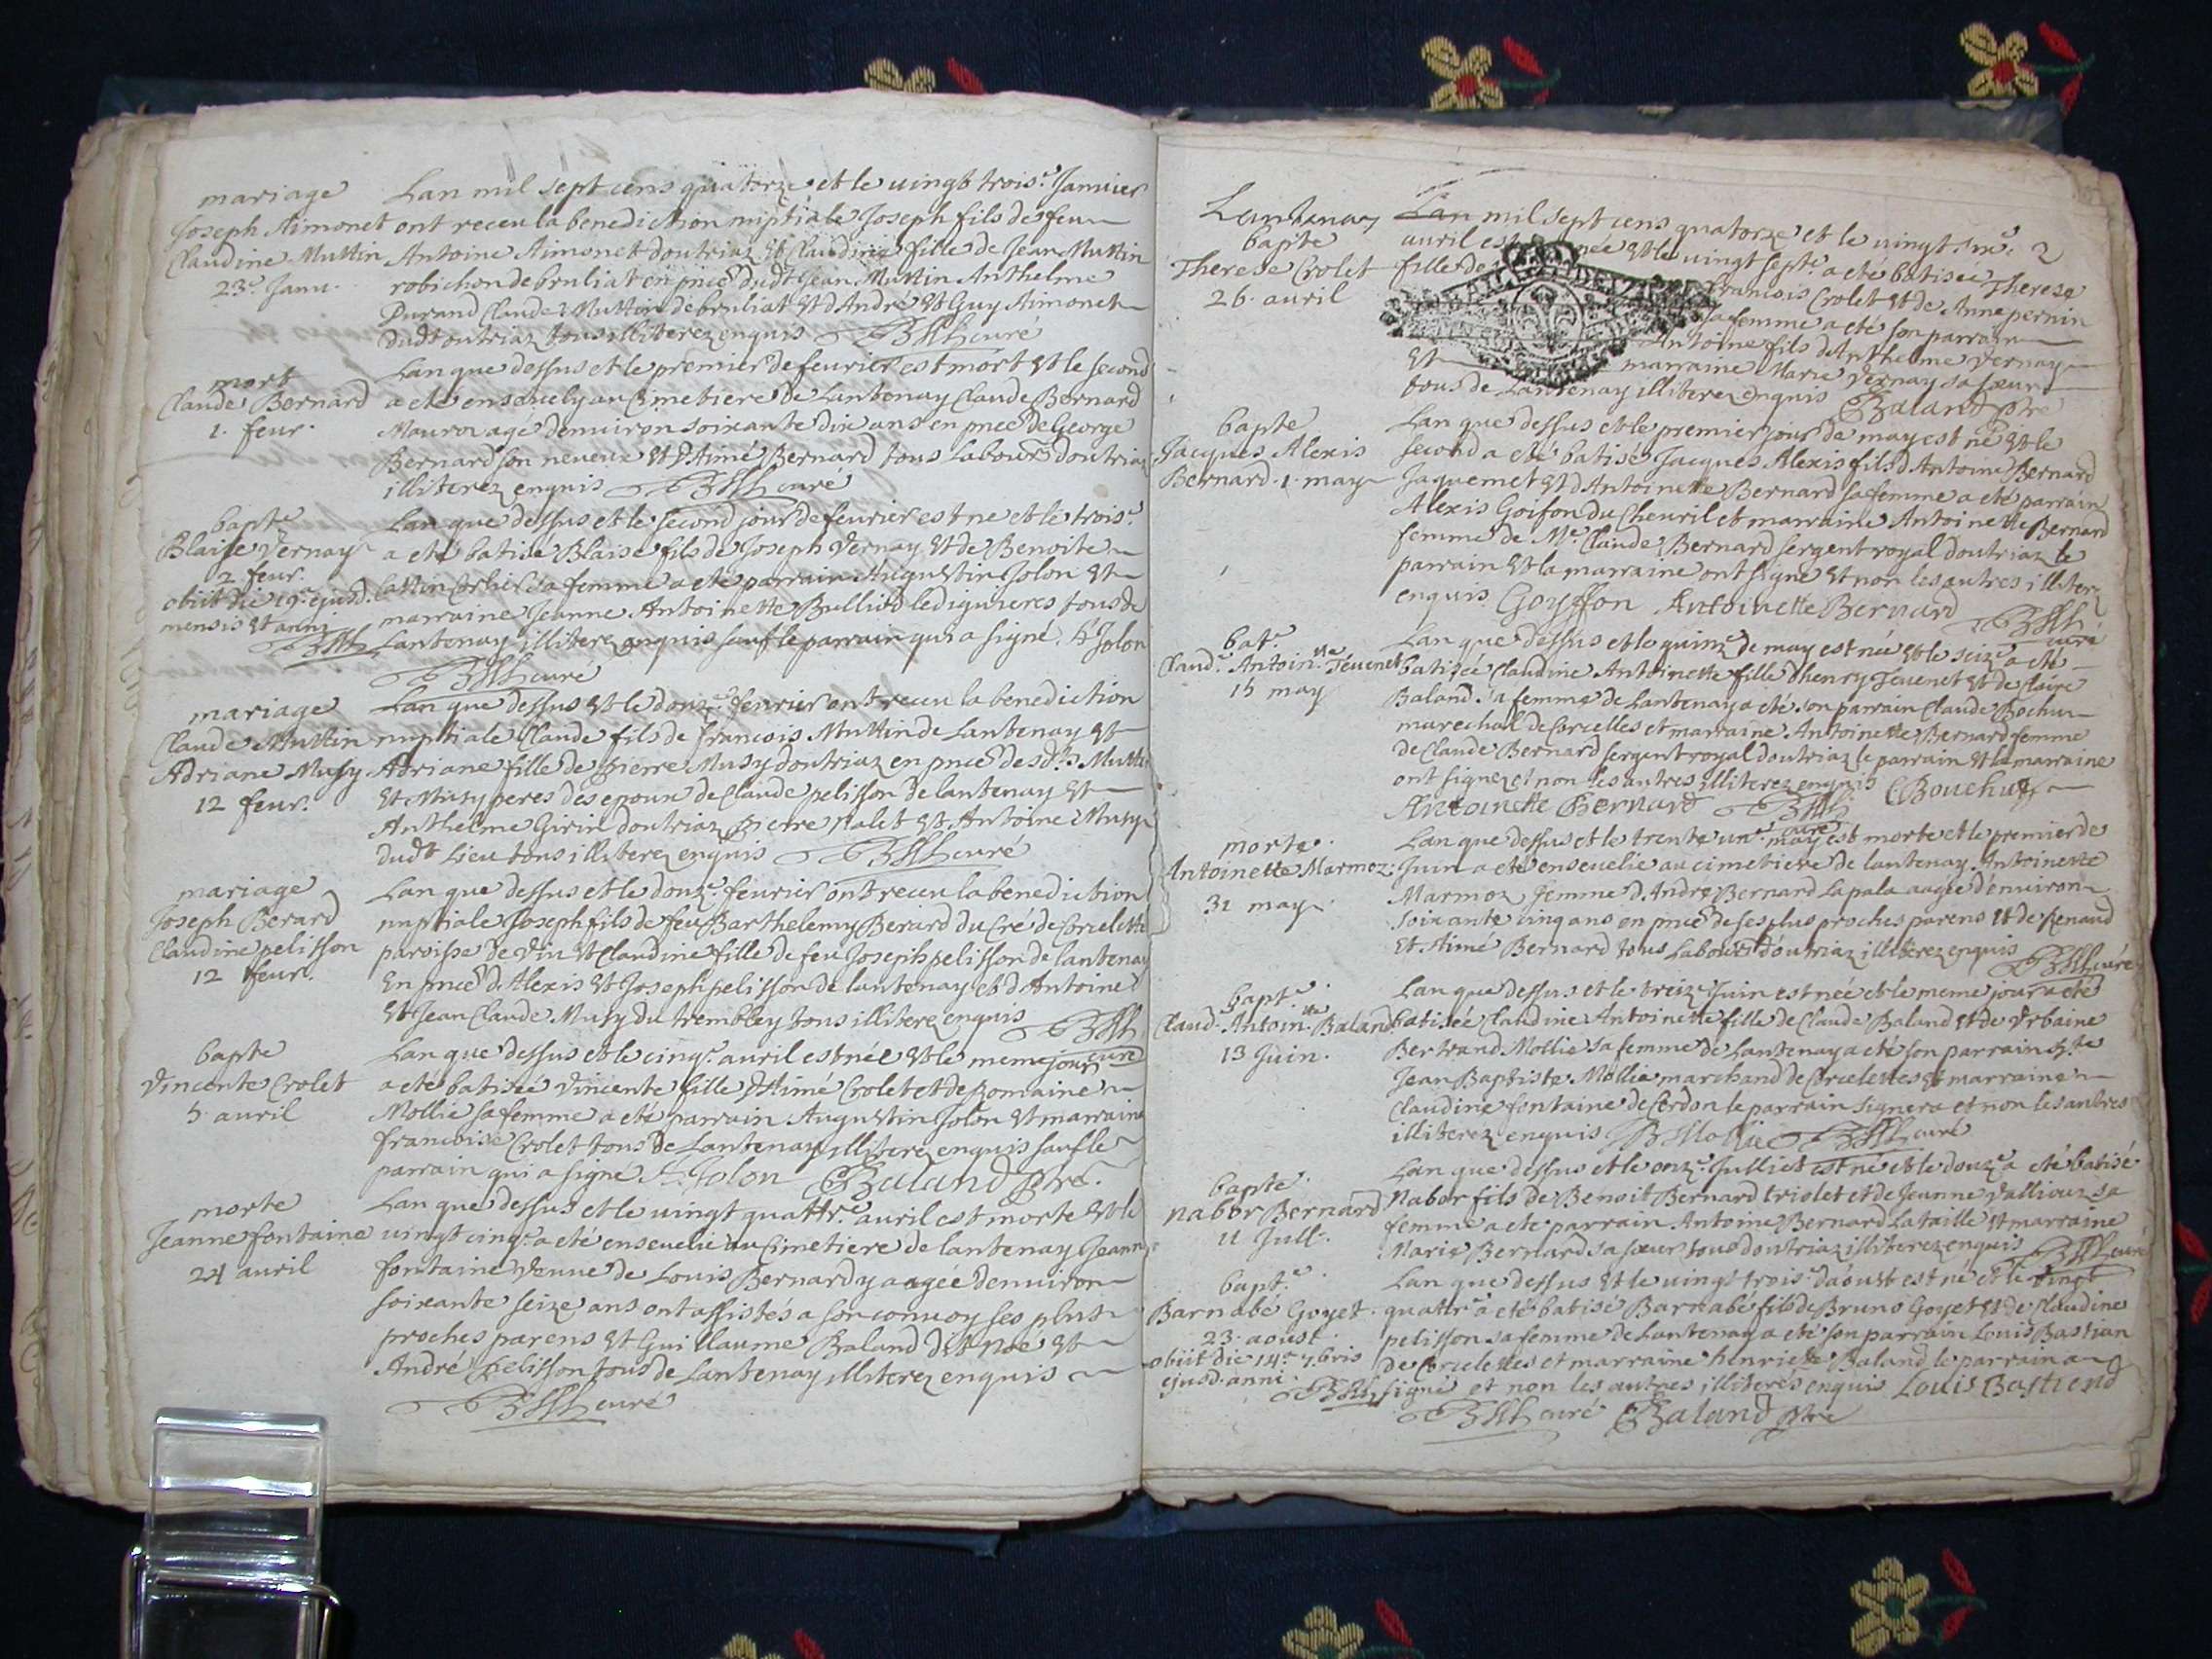 mariage
Joseph Aimonet
Claudine Muttin
23.e Janu.
Lan mil sept cens quatorze et le vingt trois.e Januier
ont receu la benediction nuptiale Joseph fils de feu
Antoine Aimonet doutriaz Et Claudine fille de Jean Muttin
robichon de bruliat en pnce dudt Jean Muttin Anthelme
Durand Claude Muttin de bruliat Et d'André Et Guy Aimonet
dudt outriaz tous illiterez enquis curé
mort
Claude Bernard
1. feur.
Lan que dessus et le premier de feurier est mort Et le second
a eté enseuely au Cimetiere de Lantenay Claude Bernard
agé denuiron soixante dix ans en pnce de George
Bernard son neueux Et d'Aimé Bernard tous Labours doutriaz
illiterez enquis curé
bapte
Blaise Vernay
2 feur.
obiit die 19.a ejusd.
mensis Et anni
Lan que dessus et le second jour de feurier est ne et le trois.e
a eté batisé Blaise fils de Joseph Vernay Et de Benoite
Cattin Corlier sa femme a eté parrain Augustin Jolon Et
marraine Jeanne Antoinette Bulliod lediguieres tous de
Lantenay illiterez enquis sauf le parrain qui a signé. A Jolon
curé
mariage
Claude Muttin
Adriane Musy
12 feur.
Lan que dessus Et le douz.e feurier ont receu la benediction
nuptiale Claude fils de francois Muttin de Lantenay Et
Adriane fille de pierre Musy doutriaz en pnce desdts Muttin
Et Musy peres des epoux de Claude pelisson de lantenay Et
Anthelme Girin doutriaz pierre nalet Et Antoine Musy
dudt Lieu tous illiterez enquis curé
mariage
Joseph Berard
Claudine pelisson
12 feur.
Lan que dessus et le douz.e feurier ont receu la benediction
nuptiale Joseph fils de feu Barthelemy Berard du Cré de Corcelette
paroisse de Vin Et Claudine fille de feu Joseph pelisson de lantenay
En pnce d'Alexis Et Joseph pelisson de lantenay et d'Antoine
Et Jean Claude Musy du trembley tous illiterez enquis
curé
bapte
Vincente Crolet
5 auril
Lan que dessus et le cinq.e auril est née Et le meme jour
a eté batisée Vincente fille d'Aimé Crolet et de Romaine
Mollie sa femme a eté parrain Augustin Jolon Et marraine
francoise Crolet tous de Lantenay illiterez enquis sauf le
parrain qui a signe A. Jolon CBaland ptre.
morte
Jeanne fontaine
24 auril
Lan que dessus et le uingt quattr.e auril est morte Et le
uingt cinq.e a eté enseuelie au Cimetiere de lantenay Jeanne
fontaine Veuue de Louis Bernard y aagée denuiron
soixante seize ans ont assistés a son conuoy ses plus
proches parens Et Guillaume Baland dit noe Et
André pelisson tous de Lantenay illiterez enquis
curé
Lantenay
bapte
Therese Crolet
26. auril
Lan mil sept cens quatorze et le uingt six.e 2
auril est née Et le uingt sept.e a eté batisée Therese
fille de francois Crolet Et de Anne pernin
sa femme a eté son parrain
Antoine fils d'Anthelme Vernay
Et marraine Marie Vernay sa soeur
tous de Lantenay illiterez enquis CBaland ptre
bapte
Jacques Alexis
Bernard. 1. may
Lan que dessus et le premier jour de may est né Et le
second a eté batisé Jacques Alexis fils d'Antoine Bernard
Jaquemet Et d'Antoinette Bernard sa femme a eté parrain
Alexis Goifon du Cheuril et marraine Antoinette Bernard
femme de Me. Claude Bernard sergent royal doutriaz le
parrain Et la marraine ont signé Et non les autres illiterez
enquis Goyffon Antoinette Bernard
curé
bat.e
Claud.e Antoin.tte Téuenet
15 may
Lan que dessus et le quinz.e de may est née Et le seiz.e a eté
batizée Claudine Antoinette fille dhenry Téuenet Et de Claire
Baland sa femme de Lantenay a eté son parrain Claude Bochu
marechal de Corcelles et marraine Antoinette Bernard femme
de Claude Bernard sergent royal doutriaz le parrain Et la marraine
ont signez et non les autres illiterez enquis CBouchu
Antoinette Bernard curé
morte.
Antoinette Marmoz:
31 may
Lan que dessus et le trente un.e may est morte et le premier de
Juin a eté enseuelie au cimetiere de lantenay Antoinette
Marmoz femme d'André Bernard Lapala aagée d'enuiron
soixante cinq ans en pnce de ses plus proches parens Et de Renaud
Et Aimé Bernard tous Labours doutriaz illiterez enquis curé
bapt.e
Claud.e Antoin.tte Baland
13 Juin.
Lan que dessus et le treiz.e Juin est née et le meme jour a eté
batisée Claudine Antoinette fille de Claude Baland Et de Vrbaine
Bertrand Mollie sa femme de Lantenay a eté son parrain
Jean Baptiste Mollie marchand de Corcelettes Et marraine
Claudine fontaine de Cerdon le parrain signera et non les autres
illiterez enquis BMollie curé
bapte.
Nabor Bernard
11 Jull.
Lan que dessus et le onz.e Julliet est né et le douz.e a eté batisé
Nabor fils de Benoit Bernard triolet et de Jeanne Vallioux sa
femme a eté parrain Antoine Bernard Lataille Et marraine
Marie Bernard sa soeur tous doutriaz illiterez enquis curé
bapt.e
Barnabé Goyet.
23. aoust.
obiit die 14.a 7.bris
ejusd. anni.
Lan que dessus Et le uingt trois.e daoust est né et le vingt
quattr.e a eté batisé Barnabé fils de Bruno Goyet Et de Claudine
pelisson sa femme de Lantenay a eté son parrain Louis Bastian
de Corcelettes et marraine henriette Baland le parrain a
signé et non les autres illiterés enquis Louis Bastiend
curé CBaland ptre